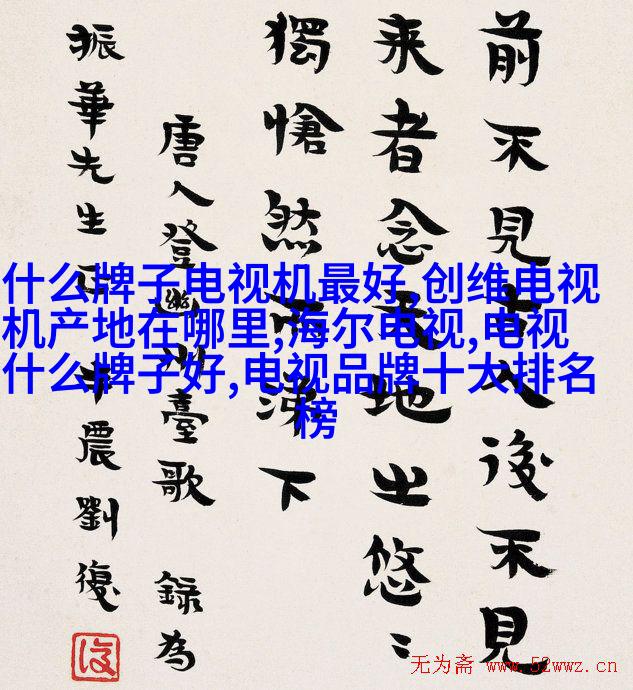 前不見古人後不見
来者念天地之悠〻
獨愴然而涕下
唐人登幽州臺歌 錄為
振華先生正 半農劉復
復
什么牌子电视机最好,创维电视
机产地在哪里,海尔电视,电视
什么牌子好,电视品牌十大排名
榜
无为斋 www.52wwz.cn